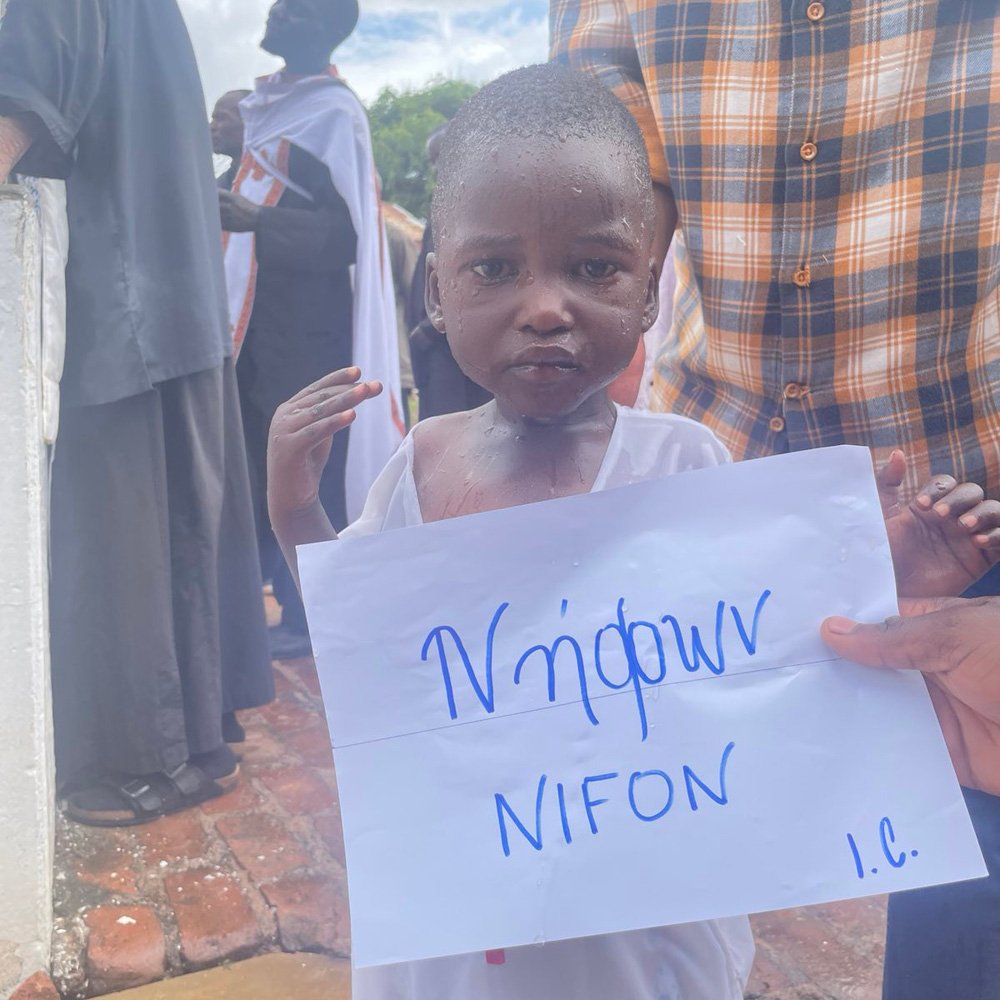 Νήφων
NIFON
I.C.